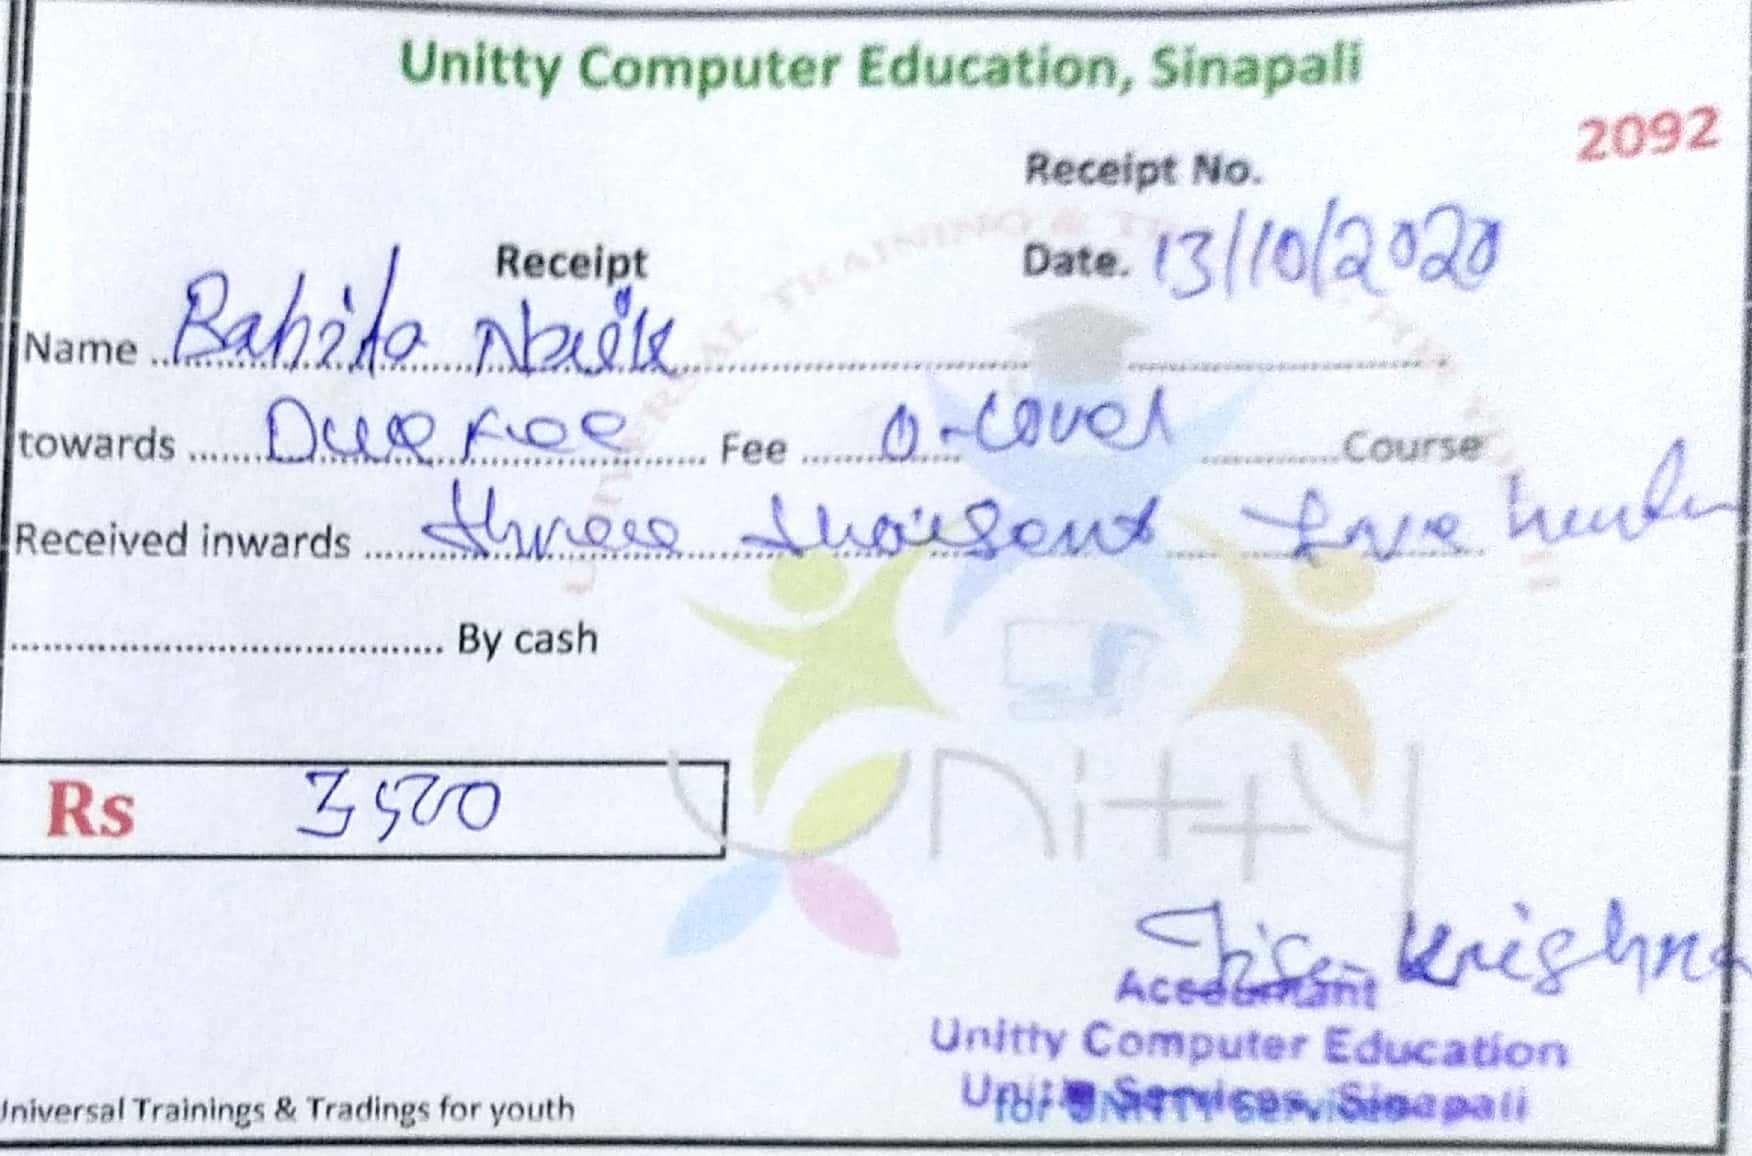 Unitty Computer Education, Sinapali
2092
Receipt No.
Receipt
Date. 13/10/2020
Name Babita Naik
towards Due Fee Fee O-Level Course
Received inwards three thousand five
By cash
Rs 3500
UNIVERSAL TRAINING &
unitty
Krishna
Accountant
Unitty Computer Education
Unitty Services, Sinapali
Universal Trainings & Tradings for youth